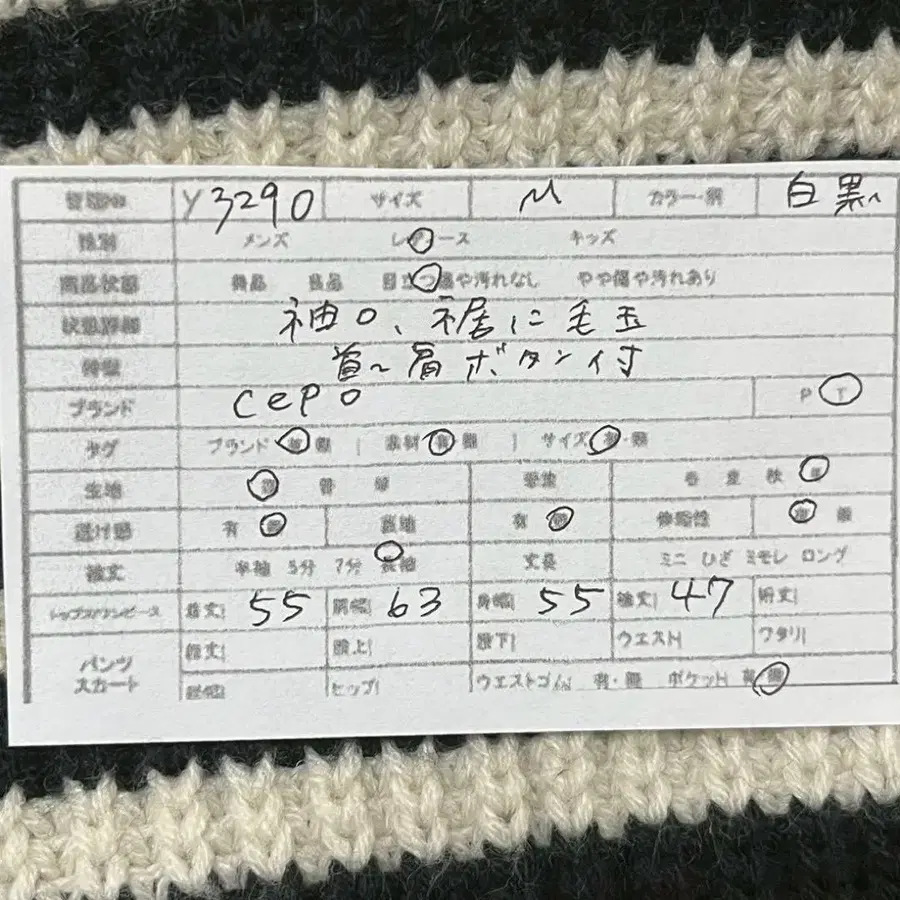 管理No Y3290 サイズ M カラー・柄 白黒
性別 メンズ レディース キッズ
商品状態 美品 良品 目立つ傷や汚れなし やや傷や汚れあり
状態詳細 袖口、裾に毛玉
特徴 首〜肩ボタン付
ブランド cepo P T
タグ ブランド 有・無 | 素材 有・無 | サイズ 有・無
生地 厚 普 薄 季節 春 夏 秋 冬
透け感 有 無 裏地 有 無 伸縮性 有 無
袖丈 半袖 5分 7分 長袖 丈長 ミニ ひざ ミモレ ロング
トップス/ワンピース 着丈| 55 肩幅| 63 身幅| 55 袖丈| 47 裄丈|
パンツ スカート 総丈| 股上| 股下| ウエスト| ワタリ|
裾幅| ヒップ| ウエストゴム| 有・無 ポケット| 有・無